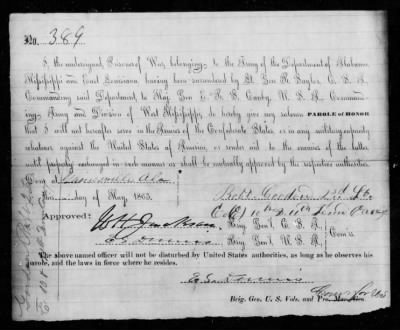 No. 389
I, the undersigned, Prisoner of War, belonging to the Army of the Department of Alabama,
Mississippi and East Louisiana, having been surrendered by Lt. Gen. R. Taylor, C. S. A.,
Commanding said Department, to Maj. Gen. E. R. S. Canby, U. S. A., Command-
ing Army and Division of West Mississippi, do hereby give my solemn PAROLE OF HONOR
that I will not hereafter serve in the Armies of the Confederate States, or in any military capacity
whatever against the United States of America, or render aid to the enemies of the latter,
until properly exchanged in such manner as shall be mutually approved by the respective authorities.
Done at Gainesville Ala
this day of May, 1865. Robt 2d Lt
Co 10th & 11th Tenn Cavy
Approved:
W H Jackson Brig. Gen'l, C. S. A.
E S Dennis Brig. Gen'l, U. S. A. Com'rs
The above named officer will not be disturbed by United States authorities, as long as he observes his
parole, and the laws in force where he resides.
E. S. Dennis
Brig. Gen. U. S. Vols. and